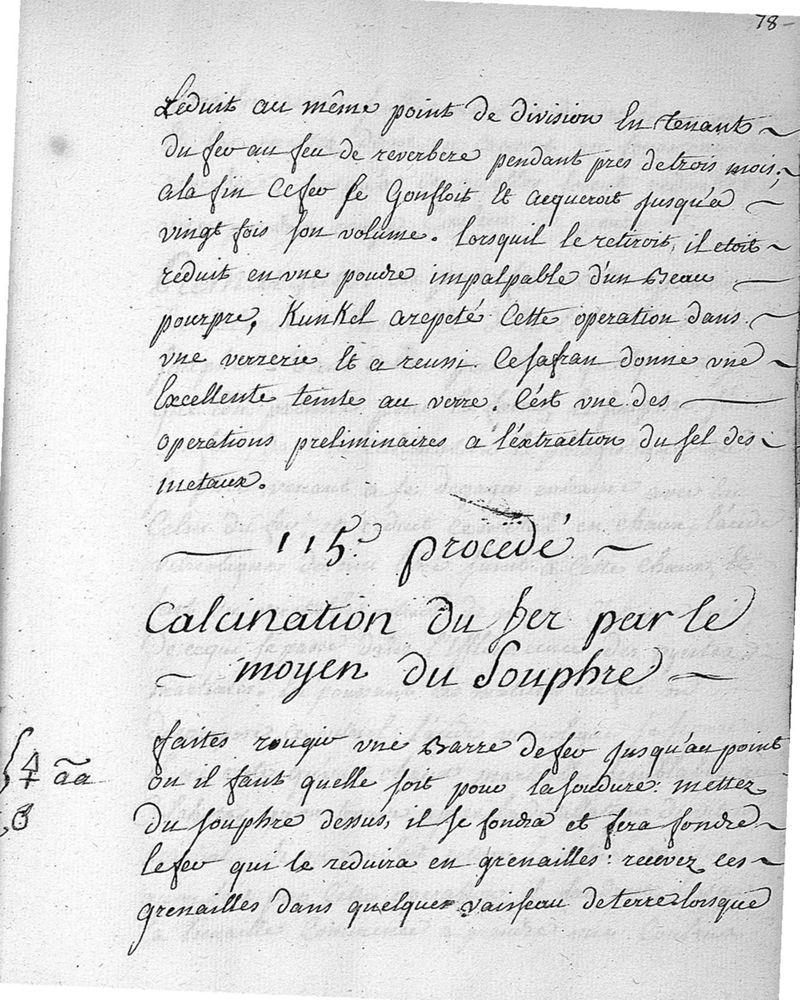 78
Réduit au même point de division En tenant
du fer au feu de reverbere pendant pres de trois mois;
a la fin Ce fer se Gonfloit Et acqueroit jusqu'a
vingt fois son volume. lorsquil le retiroit, il etoit
reduit en une poudre impalpable d'un Beau
pourpre, Kunkel a repeté Cette operation dans
une verrerie Et a reussi. Ce safran donne une
Excellente teinte au verre. C'est une des
operations preliminaires a l'extraction du sel des
metaux.
115.e procedé
Calcination du fer par le
moyen du Souphre
faites rougir une Barre de fer jusqu'au point
ou il faut quelle soit pour la soudure: mettez
Du souphre dessus, il se fondra et fera fondre
le fer qui se reduira en grenailles: recevez ces
grenailles dans quelque vaisseau de terre lorsque
🜍 ãa